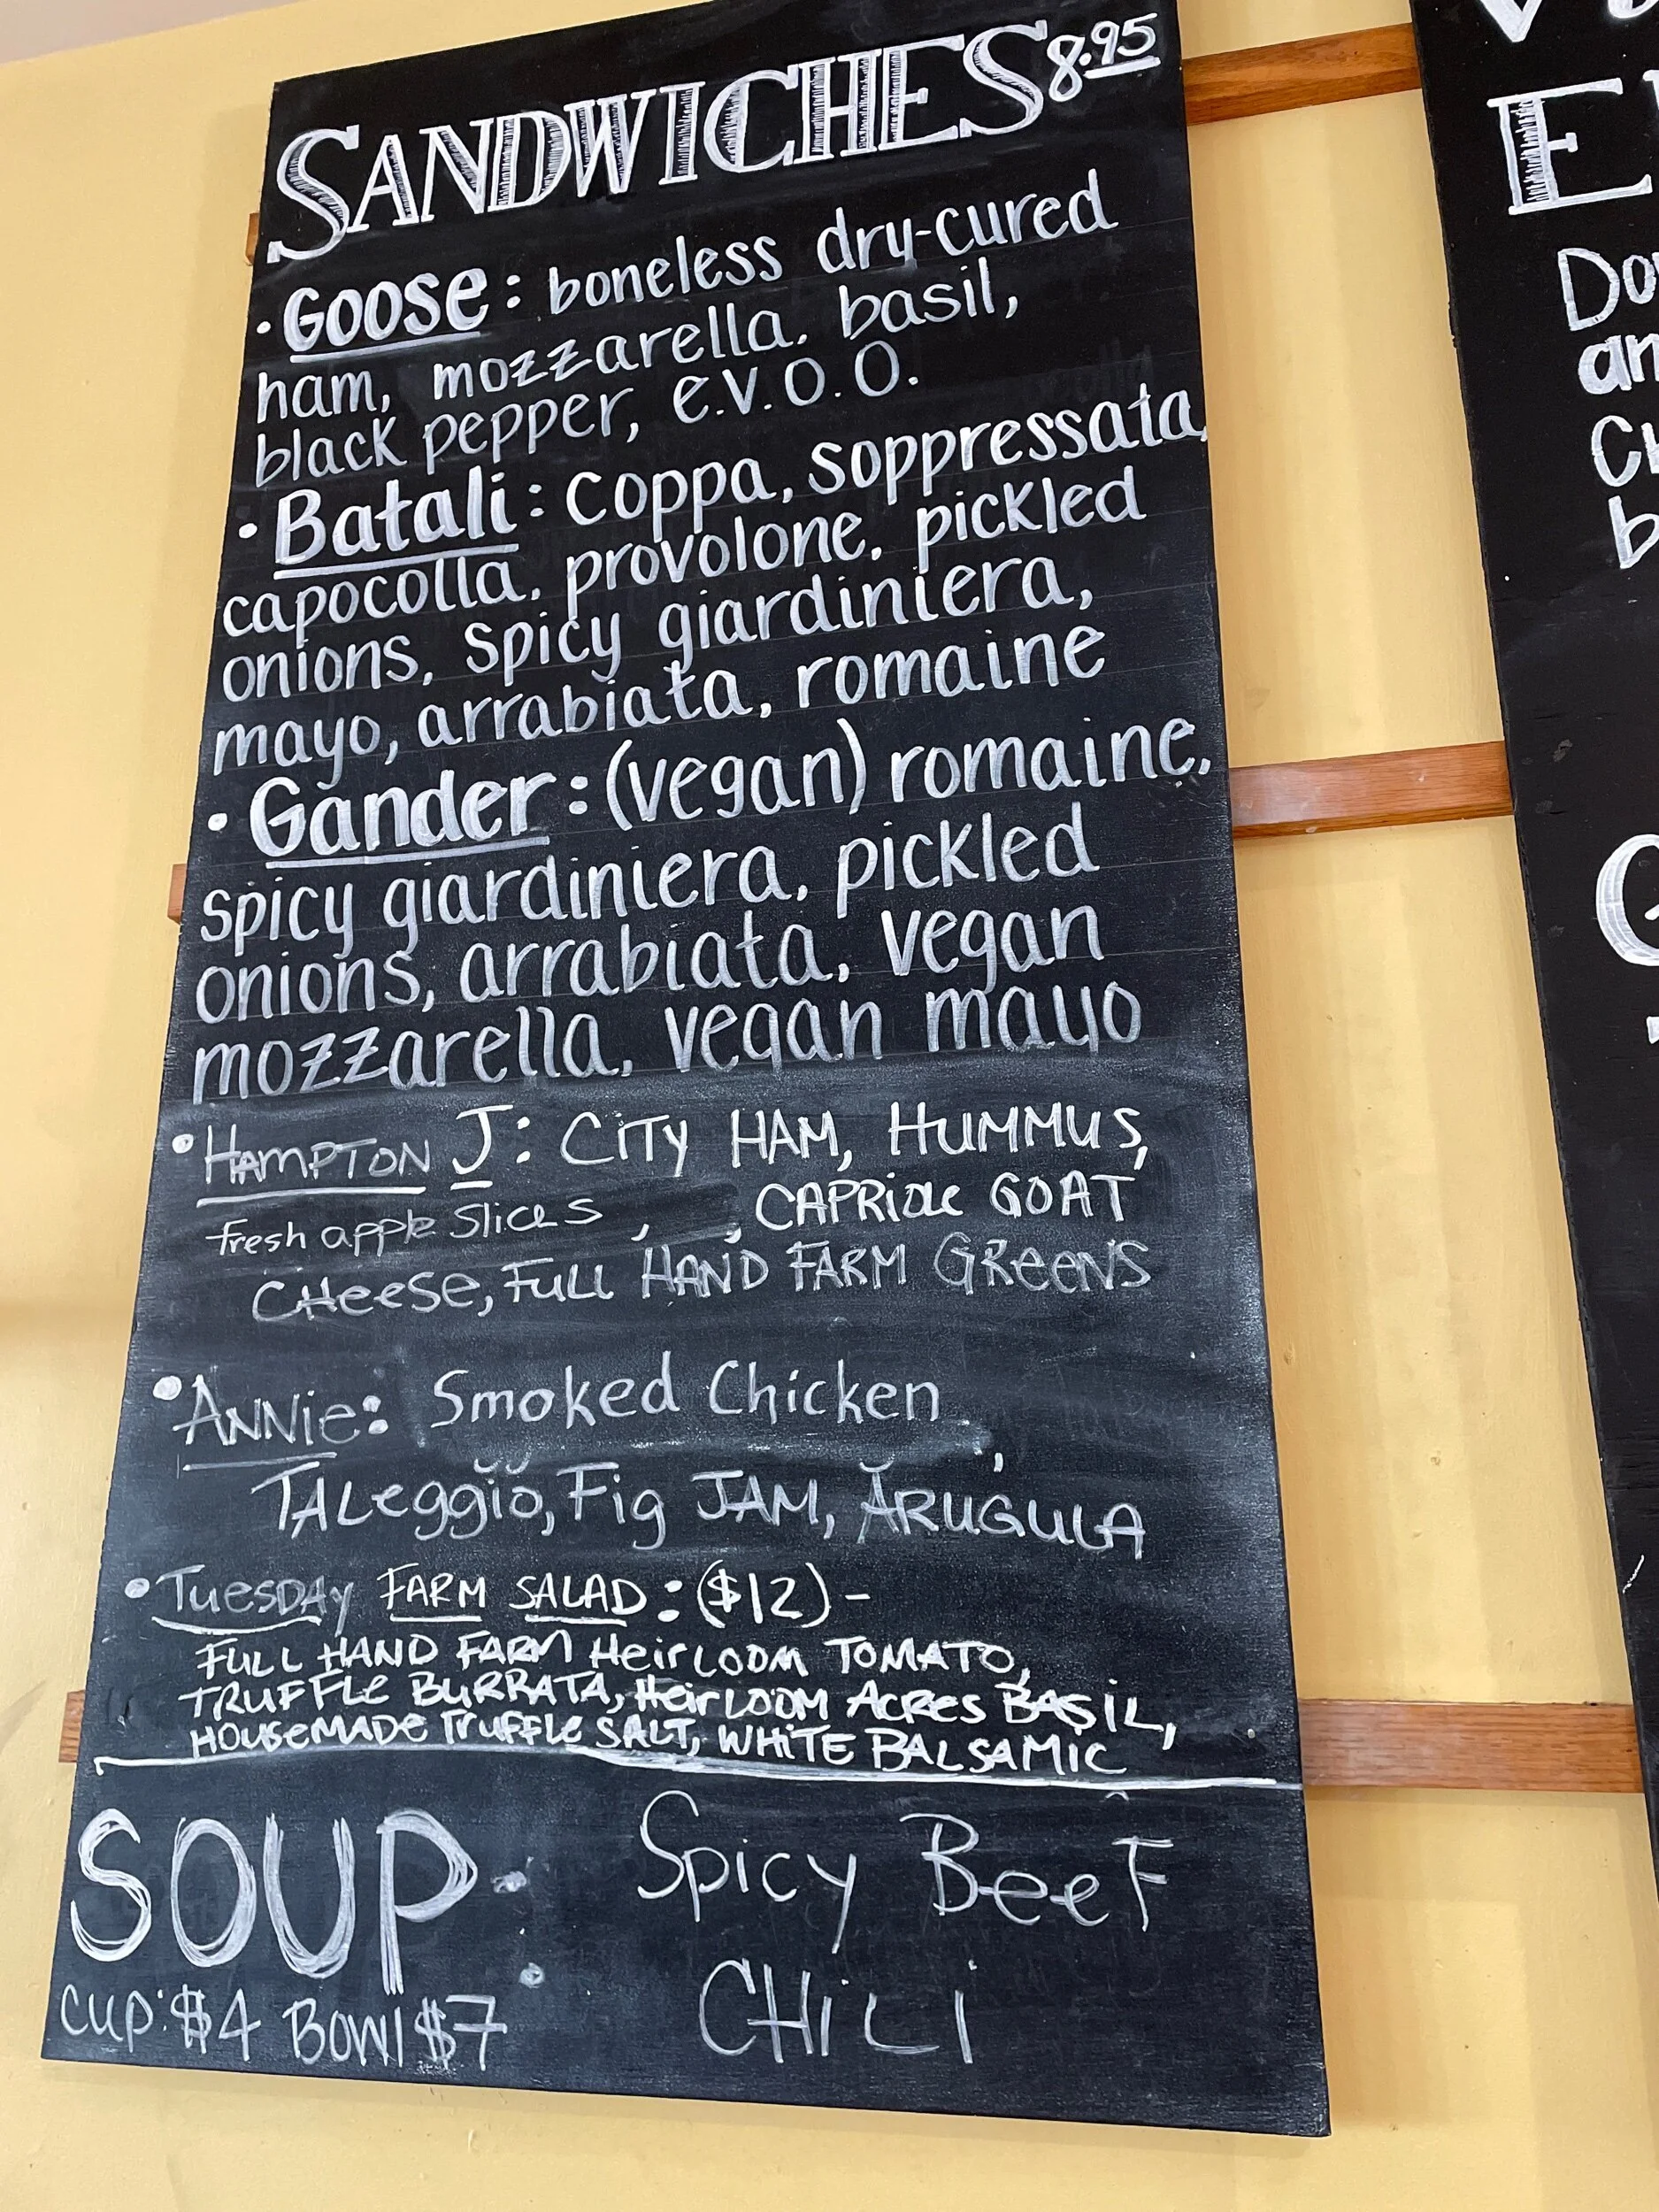 SANDWICHES 8.95
• Goose: boneless dry-cured
ham, mozzarella, basil,
black pepper, e.v.o.o.
• Batali: coppa, soppressata,
capocolla, provolone, pickled
onions, spicy giardiniera,
mayo, arrabiata, romaine
• Gander: (vegan) romaine,
spicy giardiniera, pickled
onions, arrabiata, vegan
mozzarella, vegan mayo
• HAMPTON J: CITY HAM, HUMMUS,
fresh apple slices, , CAPRIOLE GOAT
CHEESE, FULL HAND FARM GREENS
• ANNIE: Smoked Chicken,
TALeggio, Fig JAM, ARUGULA
• TUESDAY FARM SALAD: ($12) -
FULL HAND FARM HeirLOOM TOMATO,
TRUFFLE BURRATA, HeirLOOM ACRES BASIL,
HOUSEMADE TRUFFLE SALT, WHITE BALSAMIC
SOUP: Spicy BeeF
CHiLi
CUP: $4 BOWl $7
E
an
b